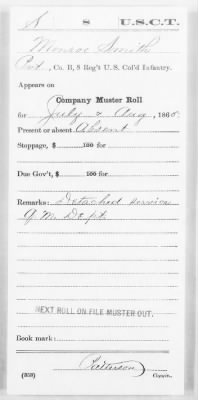 S 8 U.S.C.T.
Monroe Smith
Pvt, Co. B, 8 Reg't U. S. Col'd Infantry.
Appears on
Company Muster Roll
for July & Aug, 1865.
Present or absent Absent
Stoppage, $ 100 for
Due Gov't, $ 100 for
Remarks: Detached Service
Q M Dept
NEXT ROLL ON FILE MUSTER OUT.
Book mark:
(358) Copyist.